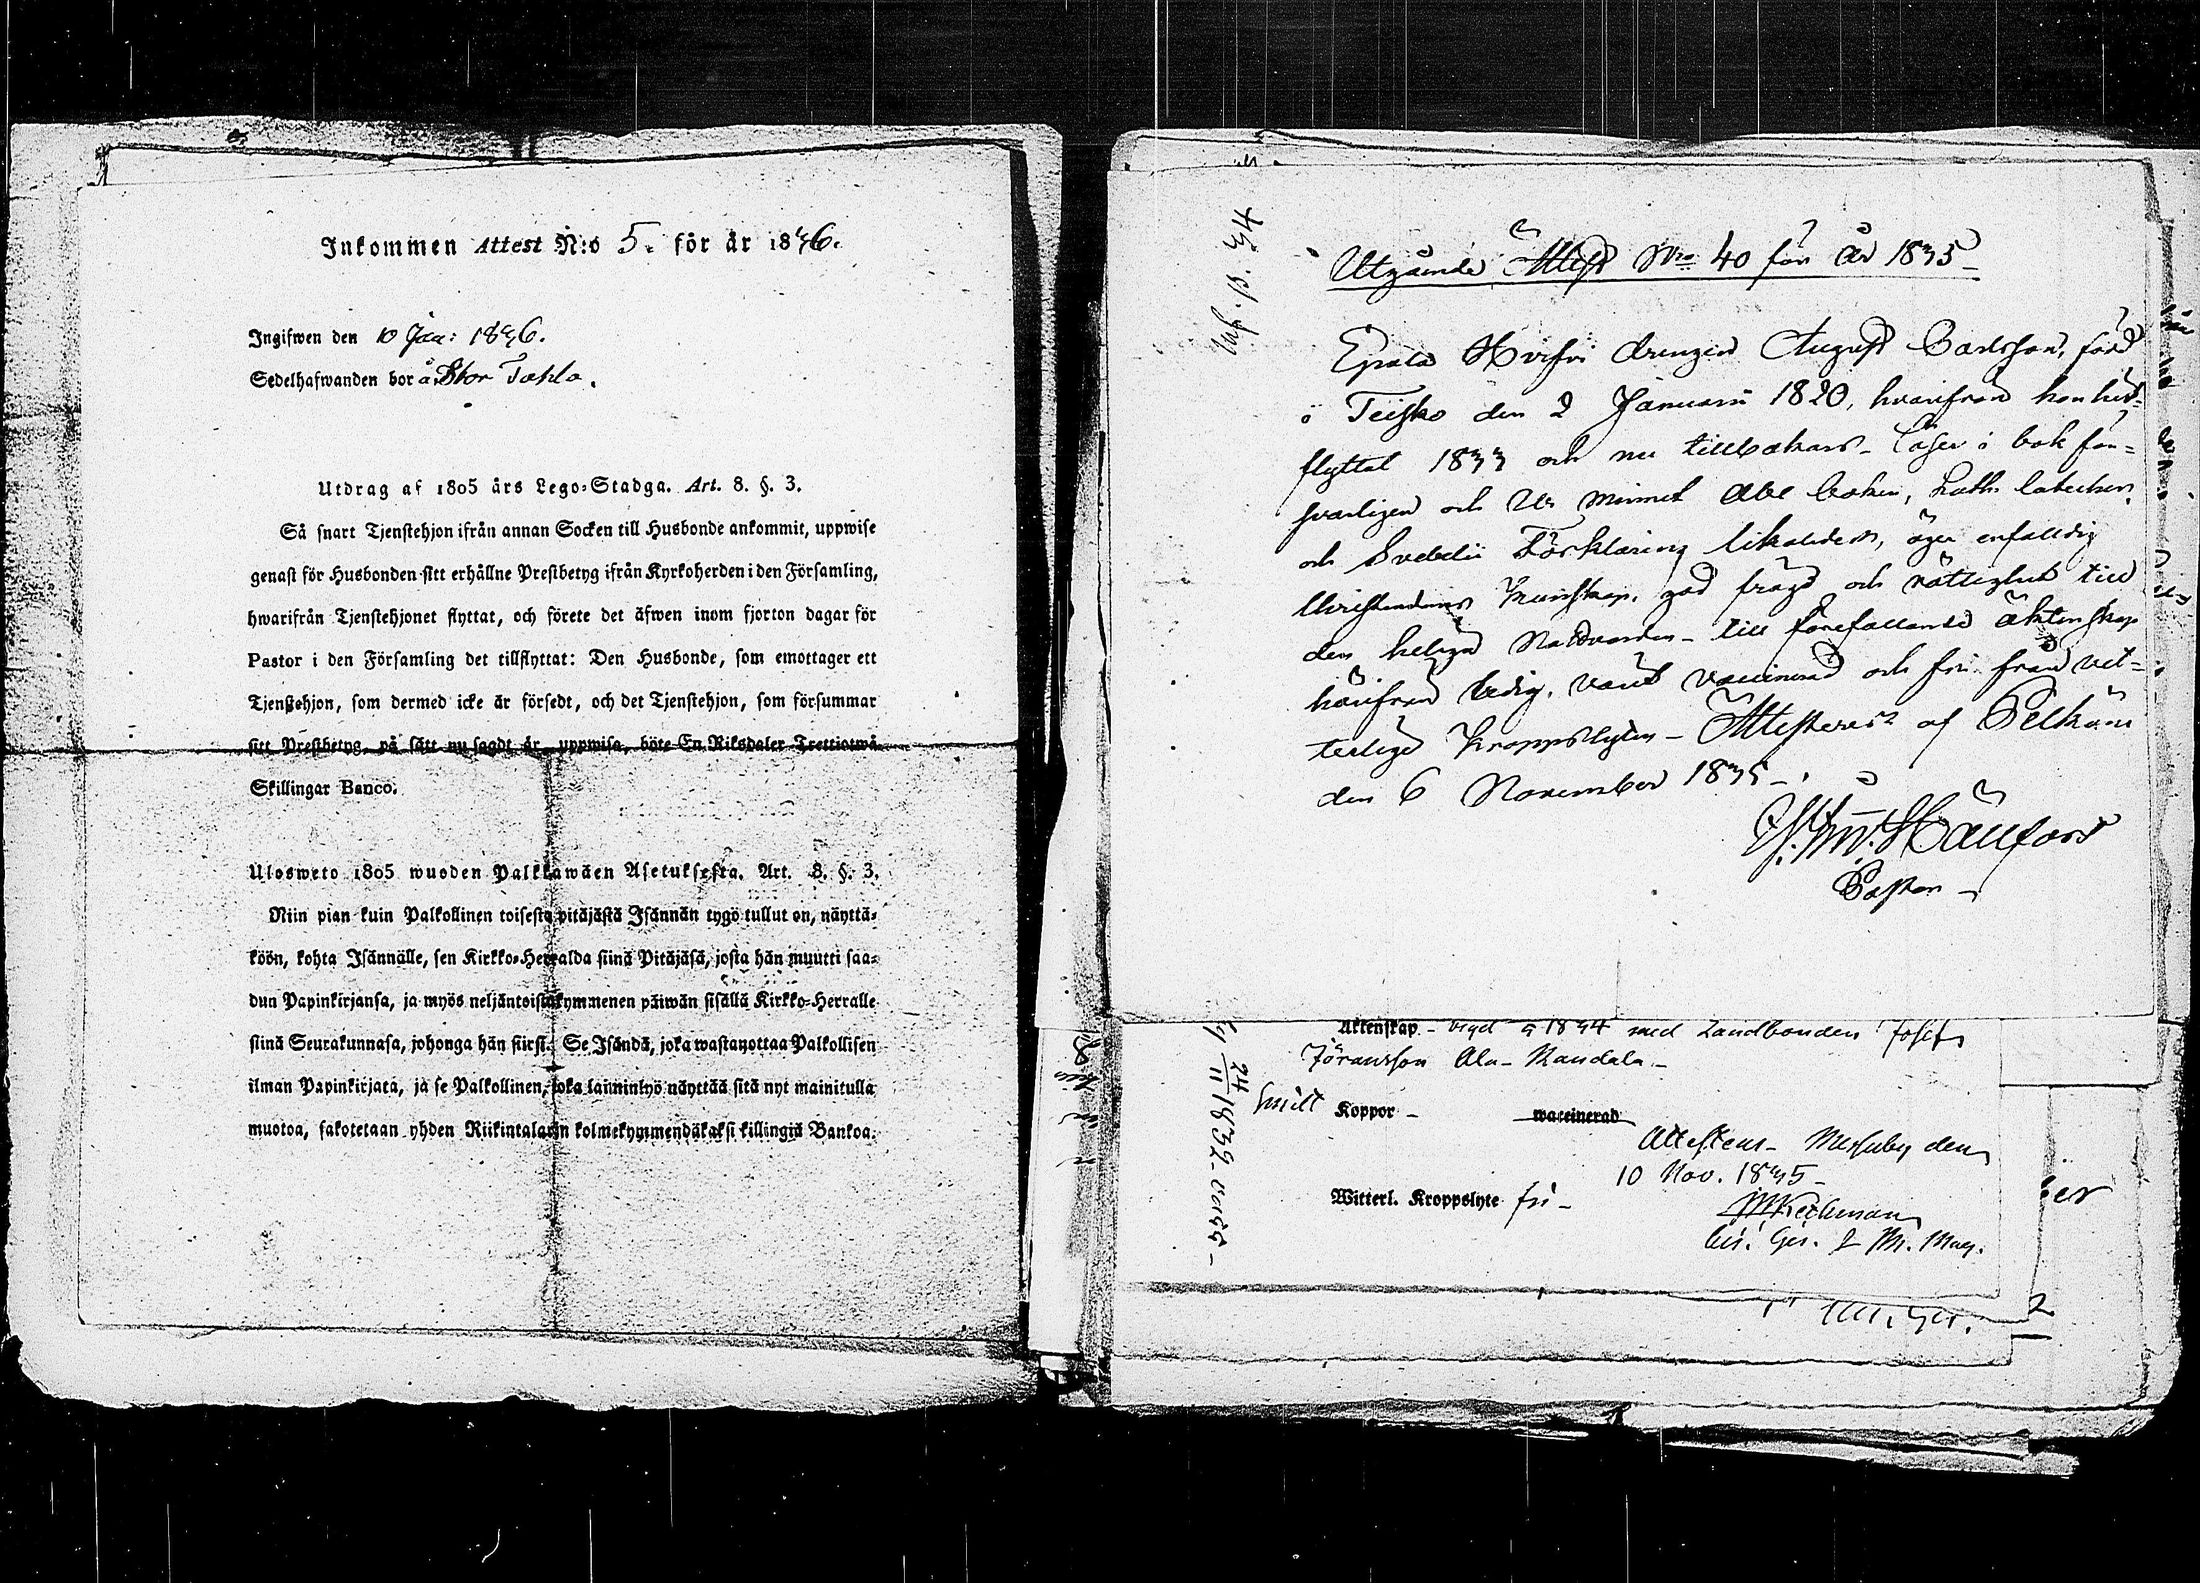 Inkommen Attest N:o 5. för år 1846.
Ingifwen den 10 Jan: 1846.
Sedelhafwanden bor å Stor Tahlo.
Utdrag af 1805 års Lego-Stadga. Art. 8. §. 3.
Så snart Tjenstehjon ifrån annan Socken till Husbonde ankommit, uppwise
genast för Husbonden sitt erhållne Prestbetyg ifrån Kyrkoherden i den Församling,
hwarifrån Tjenstehjonet flyttat, och förete det äfwen inom fjorton dagar för
Pastor i den Församling det tillflyttat: Den Husbonde, som emottager ett
Tjenstehjon, som dermed icke är försedt, och det Tjenstehjon, som försummar
sitt Prestbetyg, på sätt nu sagdt är, uppwisa, böte En Riksdaler Trettiotwå
Skillingar Banco.
Ulosweto 1805 wuoden Palkkawäen Asetuksesta. Art. 8. §. 3.
Niin pian kuin Palkollinen toisesta pitäjästä Isännän tygö tullut on, näyttä-
köön, kohta Isännälle, sen Kirkko-Herralda siinä Pitäjäsä, josta hän muutti saa-
dun Papinkirjansa, ja myös neljäntoistakymmenen päiwän sisällä Kirkko-Herralle
siinä Seurakunnasa, johonga hän siirsi. Se Isändä, joka wastanottaa Palkollisen
ilman Papinkirjatá, ja se Palkollinen, joka laiminlyö näyttää sitä nyt mainitulla
muotoa, sakotetaan yhden Riikintalarin kolmekymmendäkaksi killingiä Bankoa.
Utgående Attest Nro 40 för År 1845
drengen August Carlsson, född
i Teisko den 2 Januarii 1820, hvarifrån han hit=
flyttat 1844 och nu tillbakars. Läser i bok för=
svarligen och ur minnet Abc boken, Luth. catechesn
och Svebelii Förklaring likaledes, äger enfaldig
Christendoms kunskap, god frägd och rättighet till
den heliga Nattvarden till förefallande äktenskap
härifrån ledig, varit vaccinerad och fri från vit=
terliga kroppslyten - Attesteras af Pelkäne
den 6 November 1845
Pastor
Äktenskap - vigd 1844 med Landbonden Josef
Jöransson Ala-Kaudala
Koppor - waccinerad
Attesterar - Messuby den
10 Nov. 1845
Witterl. Kroppslyte fri -